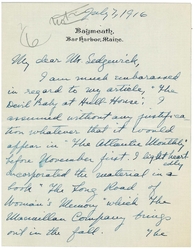 July 7, 1916
Baymeath,
Bar Harbor, Maine.
My dear Mr. Sedgwick,
I am much embarassed
in regard to my article, "The
Devil Baby at Hull-House". I
assumed without any justifi-
cation whatever that it would
appear in "The Atlantic Monthly"
before November first. I light heart
edly
incorporated the material in a
book "The Long Road of
Woman's Memory" which the
Macmillan Company brings
out in the fall. The